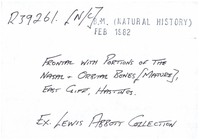 R39261. [N/C]
B.M. (NATURAL HISTORY)
FEB 1882
FRONTAL WITH PORTIONS OF THE
NASAL - ORBITAL BONES [MATURE],
EAST CLIFF, HASTINGS.
EX. LEWIS ABBOTT COLLECTION